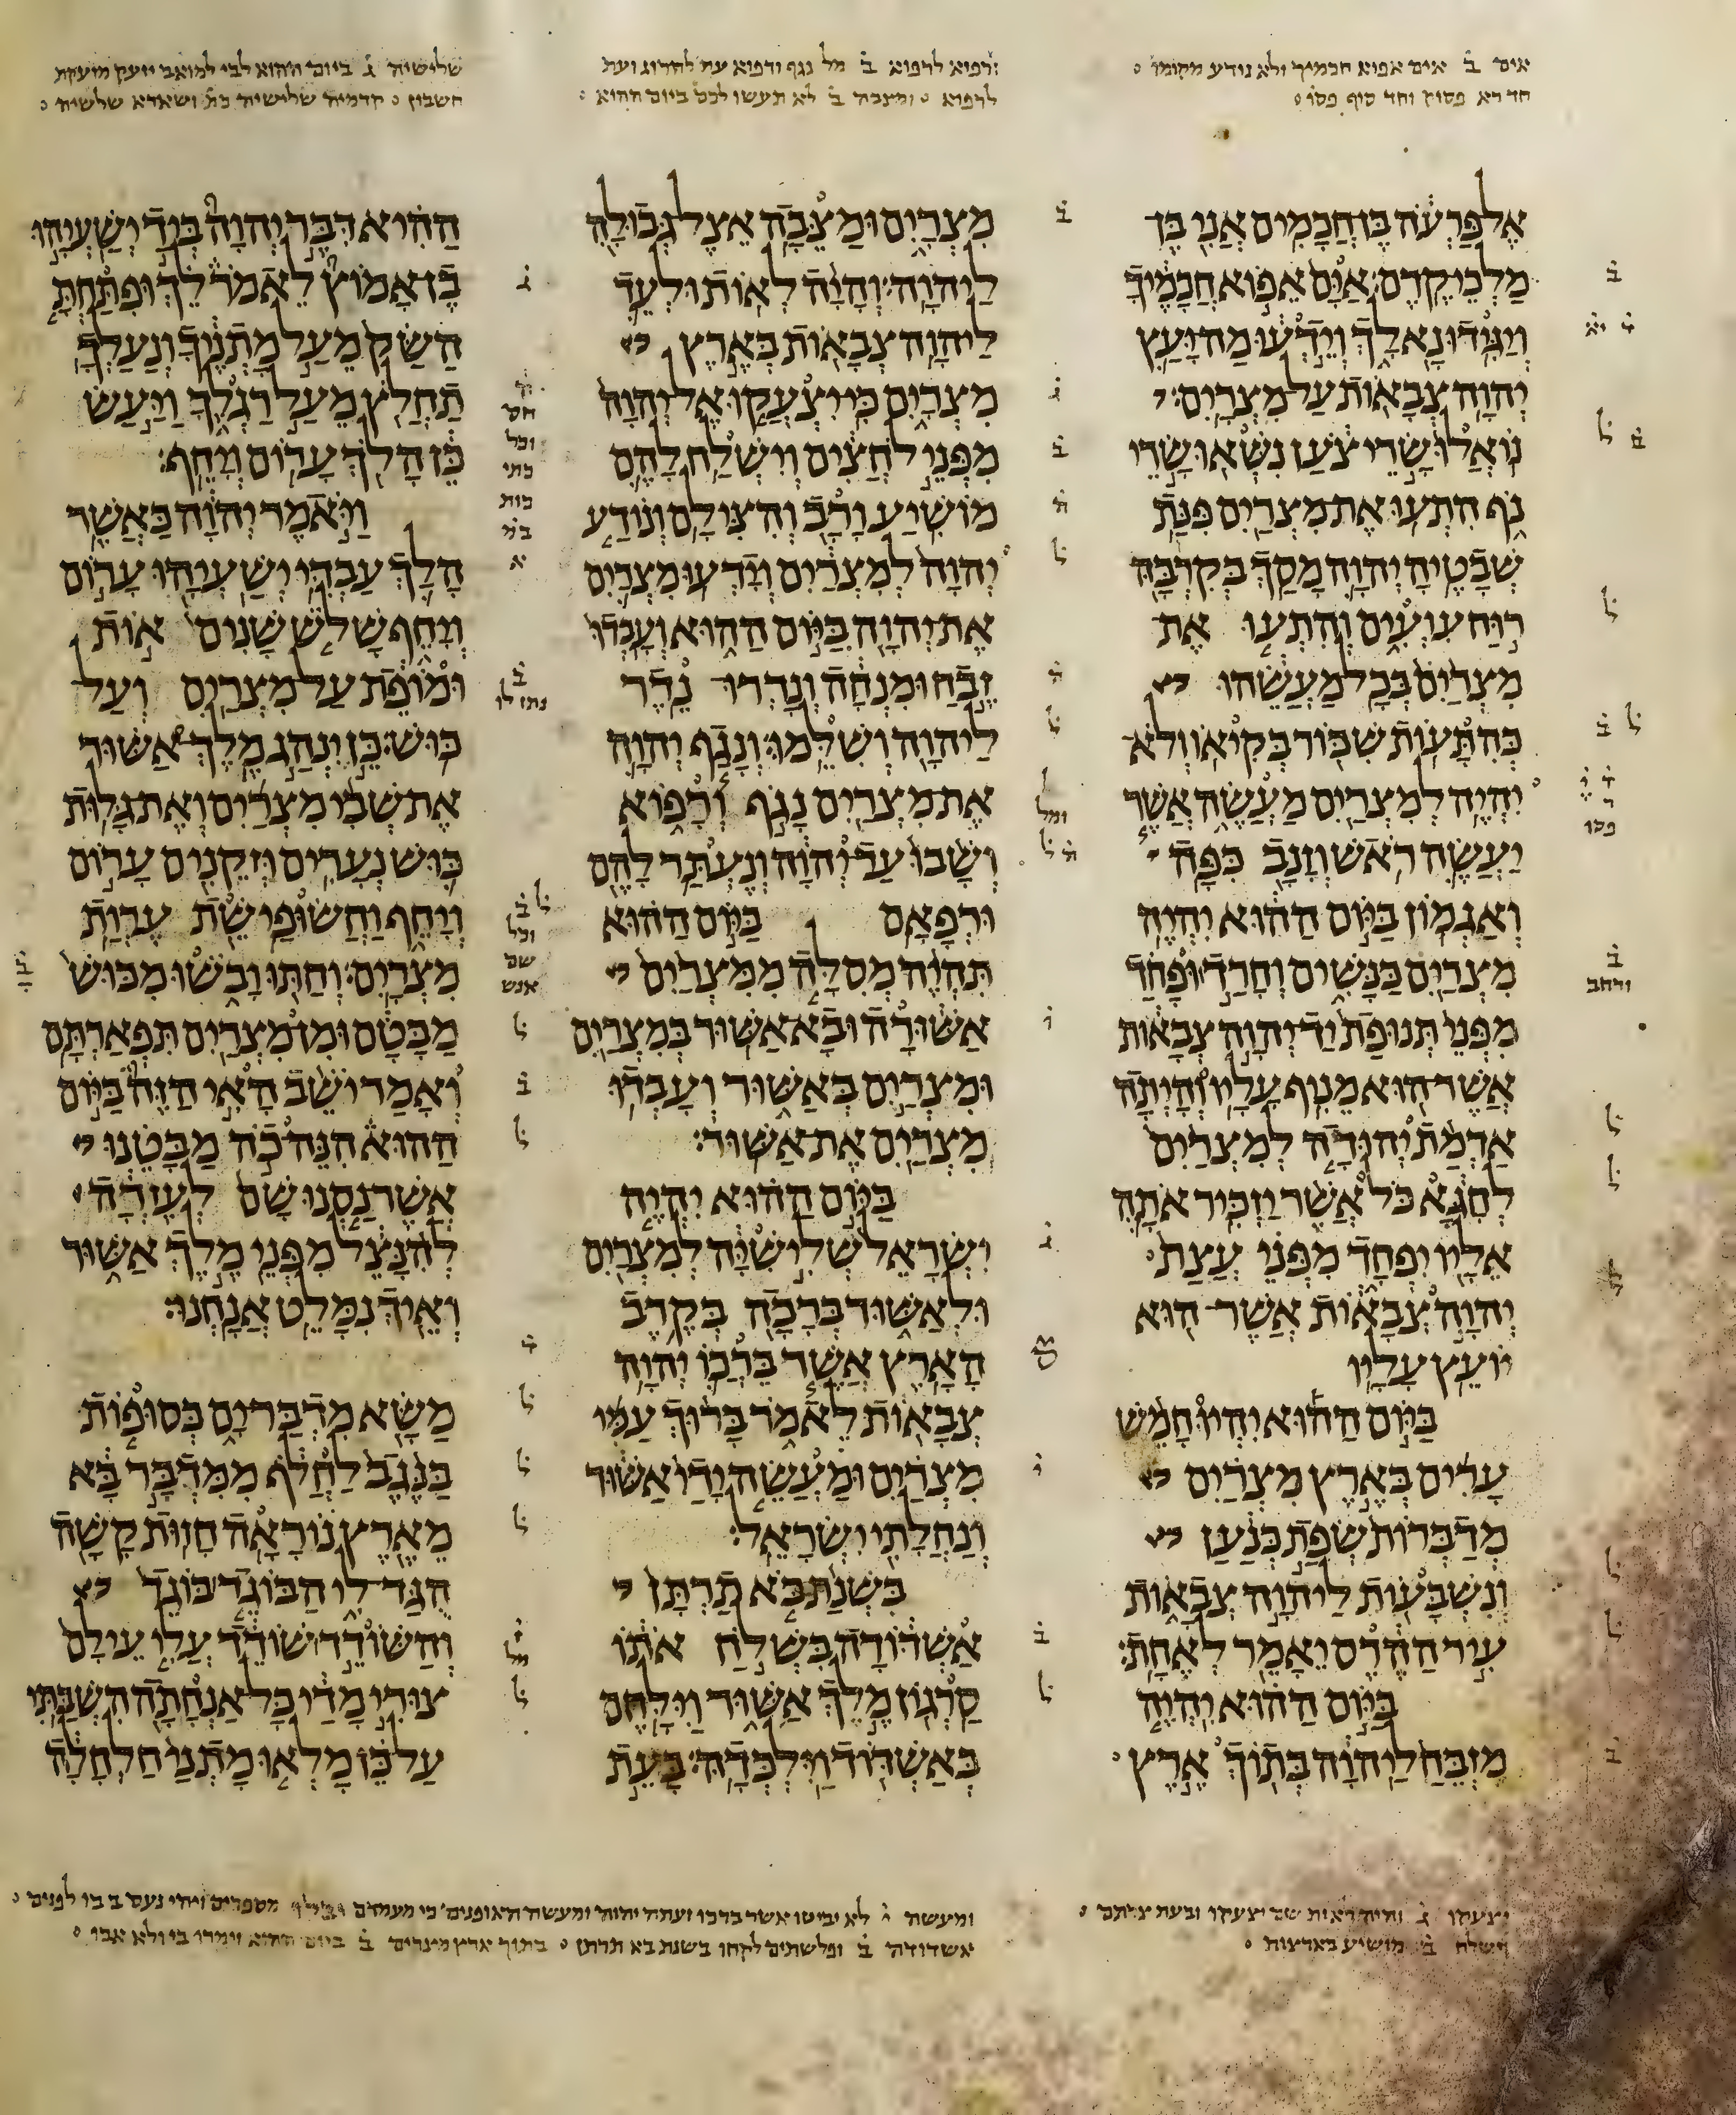 אים ב אים אפוא חכמיך ולא נודע מקומו
חד רא פסוק וחד סוף פסו
ורפוא לרפוא ב מל נגף ורפוא עת להרוג ועת
לרפוא ומצבה ב לא תעשו לכם ביום ההוא
שלישיה ג ביום ההוא לבי למואב יזעק מזעקת
חשבון קדמיה שלישיה כת ושארא שלשיה
אֶל פַּרְעֹה בֶּן חֲכָמִים אֲנִי בֶּן
מַלְכֵי קֶדֶם׃ אַיָּם אֵפוֹא חֲכָמֶיךָ
וְיַגִּידוּ נָא לָךְ וְיֵדְעוּ מַה יָּעַץ
יְהוָה צְבָאוֹת עַל מִצְרָיִם׃
נוֹאֲלוּ שָׂרֵי צֹעַן נִשְּׁאוּ שָׂרֵי
נֹף הִתְעוּ אֶת מִצְרַיִם פִּנַּת
שְׁבָטֶיהָ׃ יְהוָה מָסַךְ בְּקִרְבָּהּ
רוּחַ עִוְעִים וְהִתְעוּ אֶת
מִצְרַיִם בְּכָל מַעֲשֵׂהוּ
כְּהִתָּעוֹת שִׁכּוֹר בְּקִיאוֹ׃ וְלֹא
יִהְיֶה לְמִצְרַיִם מַעֲשֶׂה אֲשֶׁר
יַעֲשֶׂה רֹאשׁ וְזָנָב כִּפָּה
וְאַגְמוֹן׃ בַּיּוֹם הַהוּא יִהְיֶה
מִצְרַיִם כַּנָּשִׁים וְחָרַד וּפָחַד
מִפְּנֵי תְּנוּפַת יַד יְהוָה צְבָאוֹת
אֲשֶׁר הוּא מֵנִיף עָלָיו׃ וְהָיְתָה
אַדְמַת יְהוּדָה לְמִצְרַיִם
לְחׇגָּא כֹּל אֲשֶׁר יַזְכִּיר אֹתָהּ
אֵלָיו יִפְחָד מִפְּנֵי עֲצַת
יְהוָה צְבָאוֹת אֲשֶׁר הוּא
יוֹעֵץ עָלָיו
בַּיּוֹם הַהוּא יִהְיוּ חָמֵשׁ
עָרִים בְּאֶרֶץ מִצְרַיִם
מְדַבְּרוֹת שְׂפַת כְּנַעַן
וְנִשְׁבָּעוֹת לַיהוָה צְבָאוֹת
עִיר הַהֶרֶס יֵאָמֵר לְאֶחָת׃
בַּיּוֹם הַהוּא יִהְיֶה
מִזְבֵּחַ לַיהוָה בְּתוֹךְ אֶרֶץ
מִצְרָיִם וּמַצֵּבָה אֵצֶל גְּבוּלָהּ
לַיהוָה׃ וְהָיָה לְאוֹת וּלְעֵד
לַיהוָה צְבָאוֹת בְּאֶרֶץ
מִצְרָיִם כִּי יִצְעֲקוּ אֶל יְהוָה
מִפְּנֵי לֹחֲצִים וְיִשְׁלַח לָהֶם
מוֹשִׁיעַ וָרָב וְהִצִּילָם׃ וְנוֹדַע
יְהוָה לְמִצְרַיִם וְיָדְעוּ מִצְרַיִם
אֶת יְהוָה בַּיּוֹם הַהוּא וְעָבְדוּ
זֶבַח וּמִנְחָה וְנָדְרוּ נֵדֶר
לַיהוָה וְשִׁלֵּמוּ׃ וְנָגַף יְהוָה
אֶת מִצְרַיִם נָגֹף וְרָפוֹא
וְשָׁבוּ עַד יְהוָה וְנֶעְתַּר לָהֶם
וּרְפָאָם בַּיּוֹם הַהוּא
תִּהְיֶה מְסִלָּה מִמִּצְרַיִם
אַשּׁוּרָה וּבָא אַשּׁוּר בְּמִצְרַיִם
וּמִצְרַיִם בְּאַשּׁוּר וְעָבְדוּ
מִצְרַיִם אֶת אַשּׁוּר׃
בַּיּוֹם הַהוּא יִהְיֶה
יִשְׂרָאֵל שְׁלִישִׁיָּה לְמִצְרַיִם
וּלְאַשּׁוּר בְּרָכָה בְּקֶרֶב
הָאָרֶץ׃ אֲשֶׁר בֵּרְכוֹ יְהוָה
צְבָאוֹת לֵאמֹר בָּרוּךְ עַמִּי
מִצְרַיִם וּמַעֲשֵׂה יָדַי אַשּׁוּר
וְנַחֲלָתִי יִשְׂרָאֵל׃
בִּשְׁנַת בֹּא תַרְתָּן
אַשְׁדּוֹדָה בִּשְׁלֹחַ אֹתוֹ
סַרְגוֹן מֶלֶךְ אַשּׁוּר וַיִּלָּחֶם
בְּאַשְׁדּוֹד וַיִּלְכְּדָהּ׃ בָּעֵת
הַהִיא דִּבֶּר יְהוָה בְּיַד יְשַׁעְיָהוּ
בֶן אָמוֹץ לֵאמֹר לֵךְ וּפִתַּחְתָּ
הַשַּׂק מֵעַל מׇתְנֶיךָ וְנַעַלְךָ
תַחֲלֹץ מֵעַל רַגְלֶךָ וַיַּעַשׂ
כֵּן הָלֹךְ עָרוֹם וְיָחֵף׃
וַיֹּאמֶר יְהוָה כַּאֲשֶׁר
הָלַךְ עַבְדִּי יְשַׁעְיָהוּ עָרוֹם
וְיָחֵף שָׁלֹשׁ שָׁנִים אוֹת
וּמוֹפֵת עַל מִצְרַיִם וְעַל
כּוּשׁ׃ כֵּן יִנְהַג מֶלֶךְ אַשּׁוּר
אֶת שְׁבִי מִצְרַיִם וְאֶת גָּלוּת
כּוּשׁ נְעָרִים וּזְקֵנִים עָרוֹם
וְיָחֵף וַחֲשׂוּפַי שֵׁת עֶרְוַת
מִצְרָיִם׃ וְחַתּוּ וָבֹשׁוּ מִכּוּשׁ
מַבָּטָם וּמִן מִצְרַיִם תִּפְאַרְתָּם׃
וְאָמַר יֹשֵׁב הָאִי הַזֶּה בַּיּוֹם
הַהוּא הִנֵּה כֹה מַבָּטֵנוּ
אֲשֶׁר נַסְנוּ שָׁם לְעֶזְרָה
לְהִנָּצֵל מִפְּנֵי מֶלֶךְ אַשּׁוּר
וְאֵיךְ נִמָּלֵט אֲנָחְנוּ׃
מַשָּׂא מִדְבַּר יָם כְּסוּפוֹת
בַּנֶּגֶב לַחֲלֹף מִמִּדְבָּר בָּא
מֵאֶרֶץ נוֹרָאָה׃ חָזוּת קָשָׁה
הֻגַּד לִי הַבּוֹגֵד בּוֹגֵד
וְהַשּׁוֹדֵד שׁוֹדֵד עֲלִי עֵילָם
צוּרִי מָדַי כׇּל אַנְחָתָה הִשְׁבַּתִּי׃
עַל כֵּן מָלְאוּ מׇתְנַי חַלְחָלָה
יצעקו ג והיה לאות שם יצעקו ובעת צרתם
וישלח ב מושיע בארצות
ומעשה י לא יביטו אשר ברכו ועתה יהוה ומעשה האופנים כי מעמדם מספרים ויהי נעם ב בו לפנים
אשדודה ב ופלשתים לקחו בשנת בא תרתן בתוך ארץ מצרים ב ביום ההוא וימרו בי ולא אבו